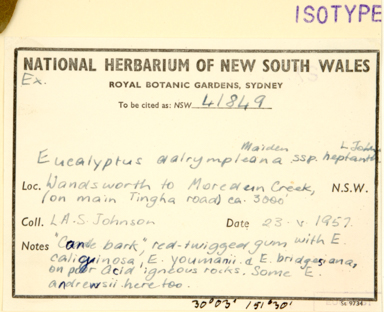 ISOTYPE
NATIONAL HERBARIUM OF NEW SOUTH WALES
Ex.
ROYAL BOTANIC GARDENS, SYDNEY
To be cited as: NSW 41849
Maiden L. Johns
Eucalyptus dalrympleana ssp. heptantha
Loc. Wandsworth to Moredun Creek, N.S.W.
(on main Tingha road) ca. 3000'
Coll. L.A.S. Johnson Date 23-v-1957
Notes "Candle bark" red-twigged gum with E.
caliginosa, E. youmanii & E. bridgesiana,
on poor acid igneous rocks. Some E.
andrewsii here too.
30°03' 151°30'